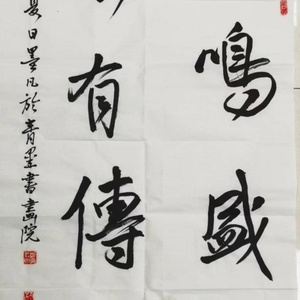 鳴盛
有傳
夏日墨凡於青墨書畫院